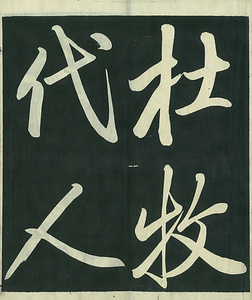 杜牧
代人